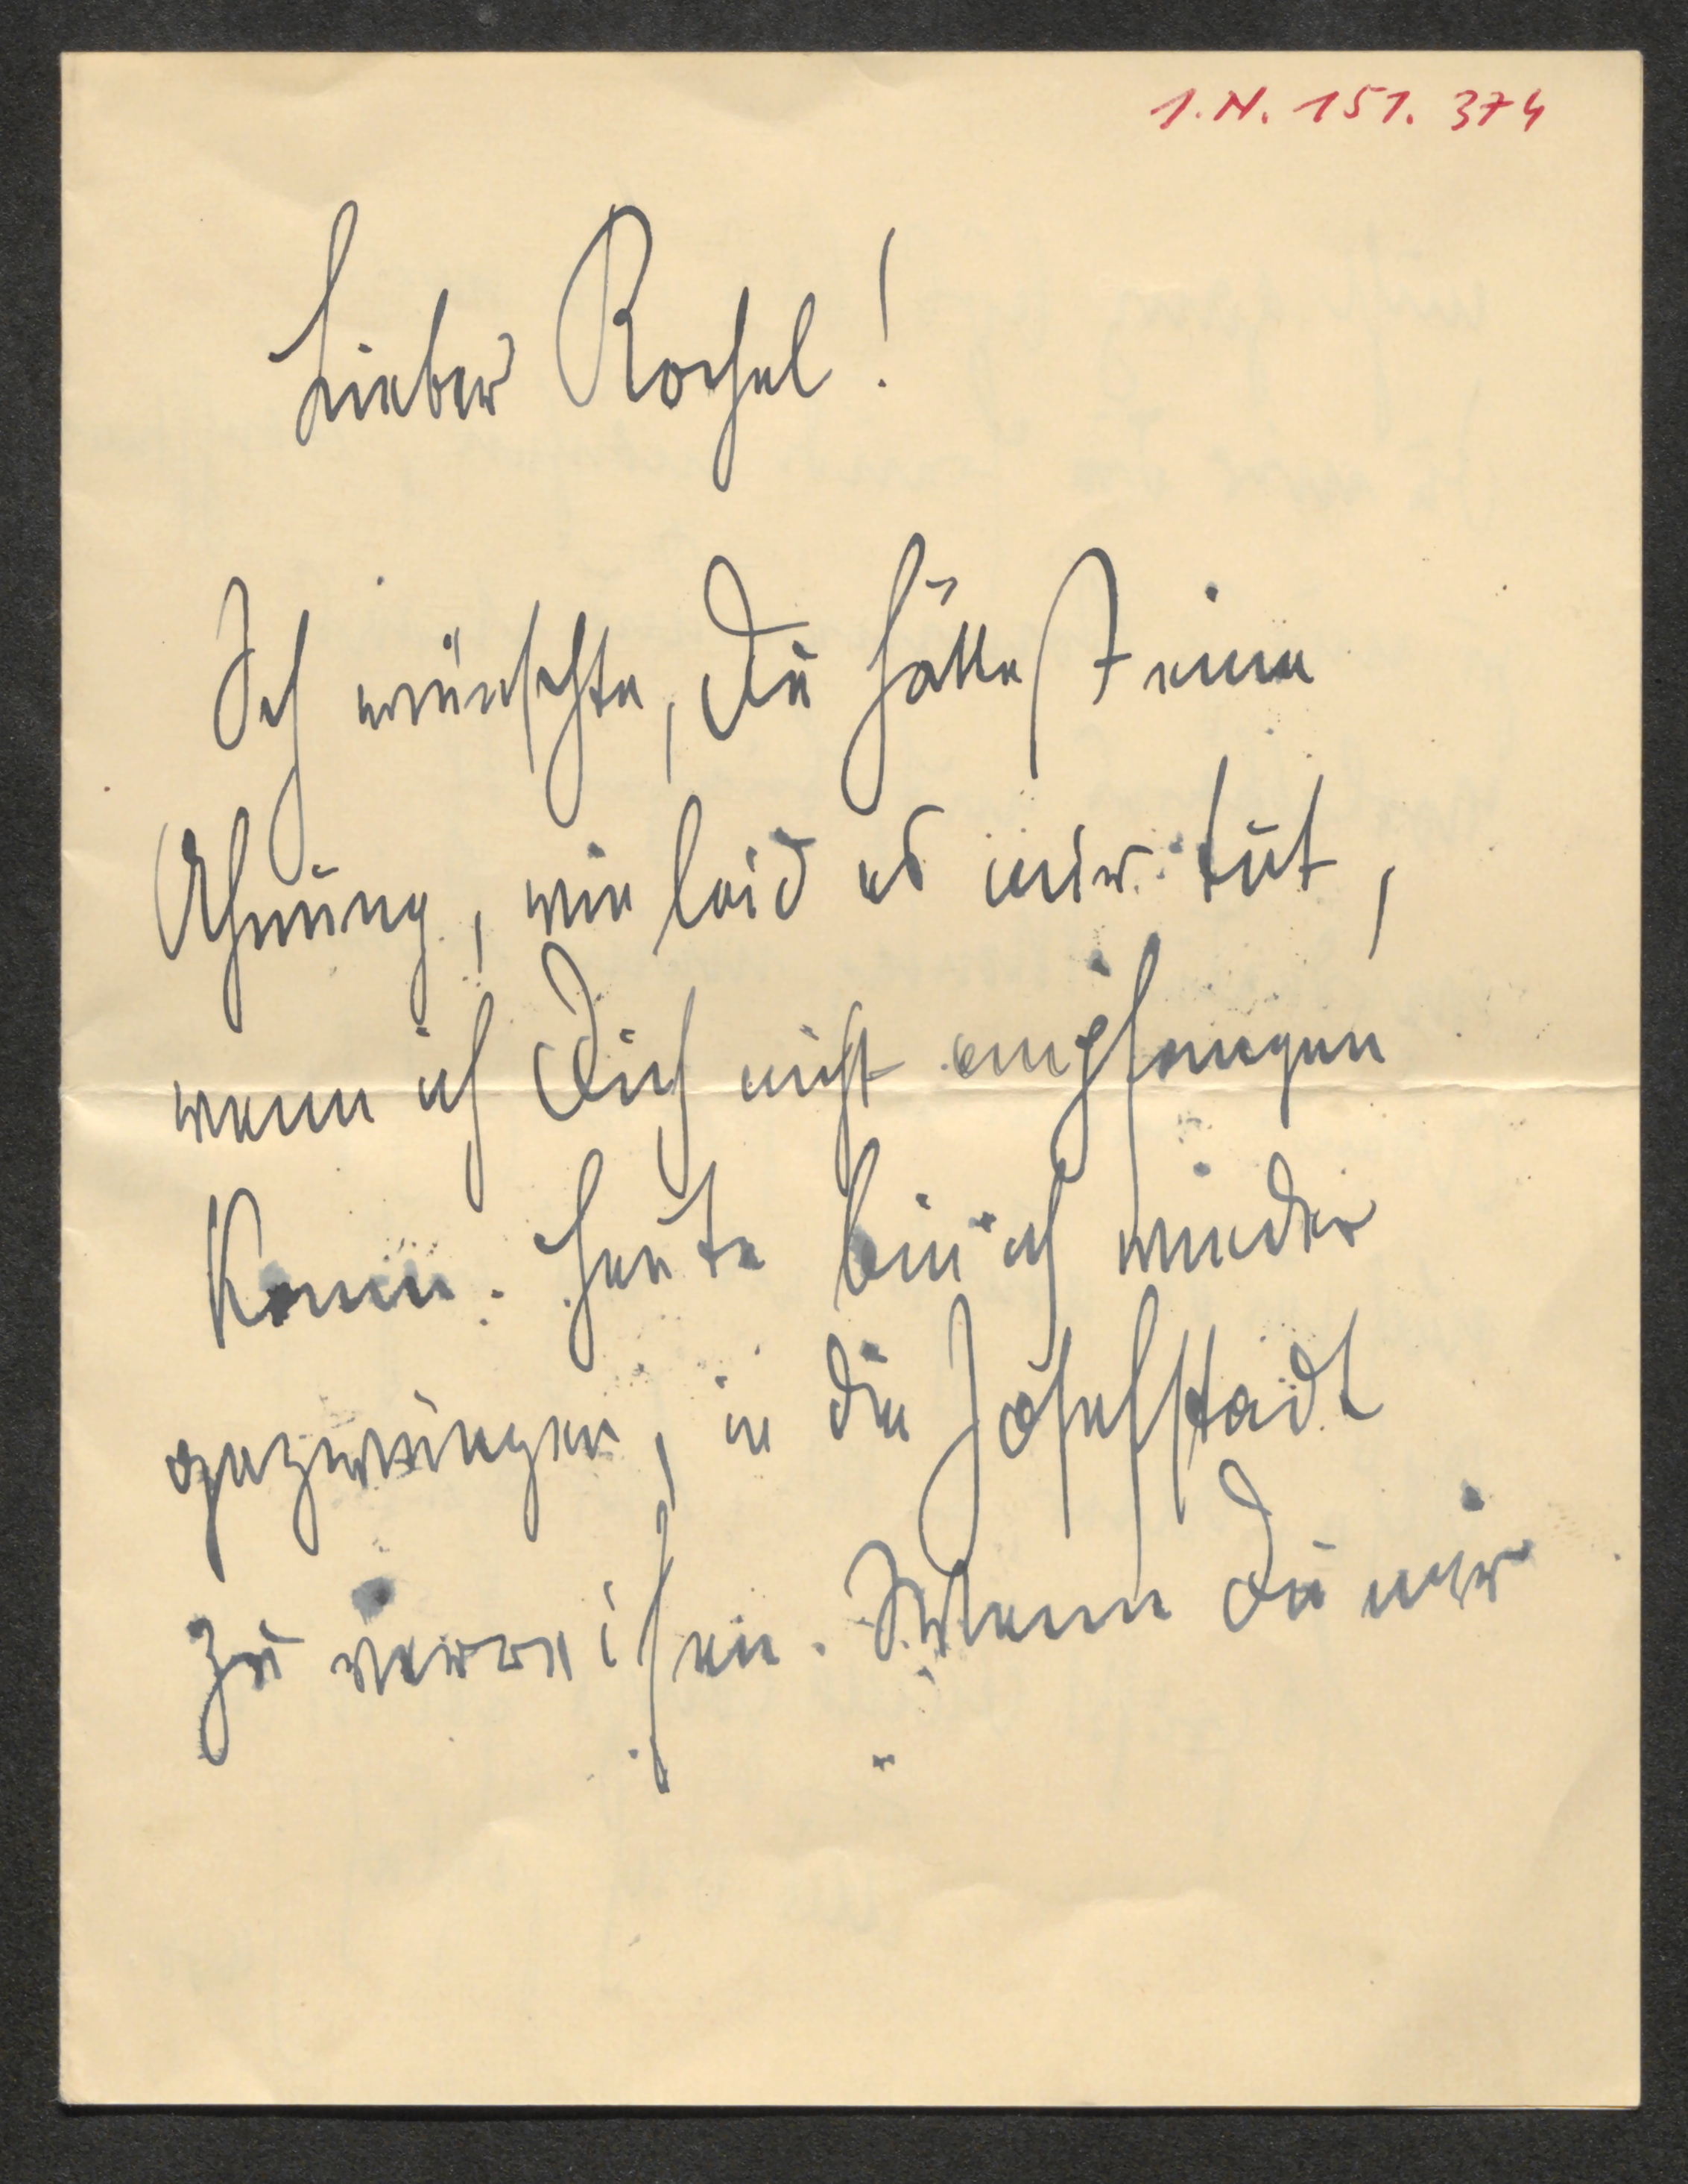 I.N. 151.374
Lieber Rochel!
Ich wünschte, Du hättest eine
Ahnung, wie leid es mir tut,
wenn ich Dich nicht empfangen
kann. Heute bin ich wieder
gezwungen, in die Josefstadt
zu verreisen. Wenn Du mir